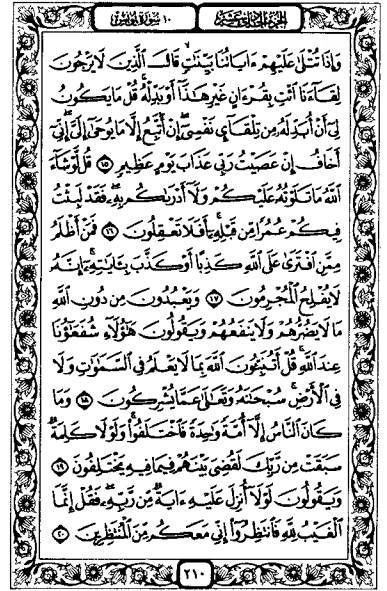 الجزء الحادي عشر ١٠ سورة يونس
وَإِذَا تُتْلَىٰ عَلَيْهِمْ ءَايَاتُنَا بَيِّنَٰتٍ قَالَ ٱلَّذِينَ لَا يَرْجُونَ
لِقَآءَنَا ٱئْتِ بِقُرْءَانٍ غَيْرِ هَٰذَآ أَوْ بَدِّلْهُ ۚ قُلْ مَا يَكُونُ
لِىٓ أَنْ أُبَدِّلَهُۥ مِن تِلْقَآئِ نَفْسِىٓ ۖ إِنْ أَتَّبِعُ إِلَّا مَا يُوحَىٰٓ إِلَىَّ ۖ إِنِّىٓ
أَخَافُ إِنْ عَصَيْتُ رَبِّى عَذَابَ يَوْمٍ عَظِيمٍ ١٥ قُل لَّوْ شَآءَ
ٱللَّهُ مَا تَلَوْتُهُۥ عَلَيْكُمْ وَلَآ أَدْرَىٰكُم بِهِۦ ۖ فَقَدْ لَبِثْتُ
فِيكُمْ عُمُرًا مِّن قَبْلِهِۦٓ ۚ أَفَلَا تَعْقِلُونَ ١٦ فَمَنْ أَظْلَمُ
مِمَّنِ ٱفْتَرَىٰ عَلَى ٱللَّهِ كَذِبًا أَوْ كَذَّبَ بِـَٔايَٰتِهِۦٓ ۚ إِنَّهُۥ
لَا يُفْلِحُ ٱلْمُجْرِمُونَ ١٧ وَيَعْبُدُونَ مِن دُونِ ٱللَّهِ
مَا لَا يَضُرُّهُمْ وَلَا يَنفَعُهُمْ وَيَقُولُونَ هَٰٓؤُلَآءِ شُفَعَٰٓؤُنَا
عِندَ ٱللَّهِ ۚ قُلْ أَتُنَبِّـُٔونَ ٱللَّهَ بِمَا لَا يَعْلَمُ فِى ٱلسَّمَٰوَٰتِ وَلَا
فِى ٱلْأَرْضِ ۚ سُبْحَٰنَهُۥ وَتَعَٰلَىٰ عَمَّا يُشْرِكُونَ ١٨ وَمَا
كَانَ ٱلنَّاسُ إِلَّآ أُمَّةً وَٰحِدَةً فَٱخْتَلَفُوا۟ ۚ وَلَوْلَا كَلِمَةٌ
سَبَقَتْ مِن رَّبِّكَ لَقُضِىَ بَيْنَهُمْ فِيمَا فِيهِ يَخْتَلِفُونَ ١٩
وَيَقُولُونَ لَوْلَآ أُنزِلَ عَلَيْهِ ءَايَةٌ مِّن رَّبِّهِۦ ۖ فَقُلْ إِنَّمَا
ٱلْغَيْبُ لِلَّهِ فَٱنتَظِرُوٓا۟ إِنِّى مَعَكُم مِّنَ ٱلْمُنتَظِرِينَ ٢٠
٢١٠